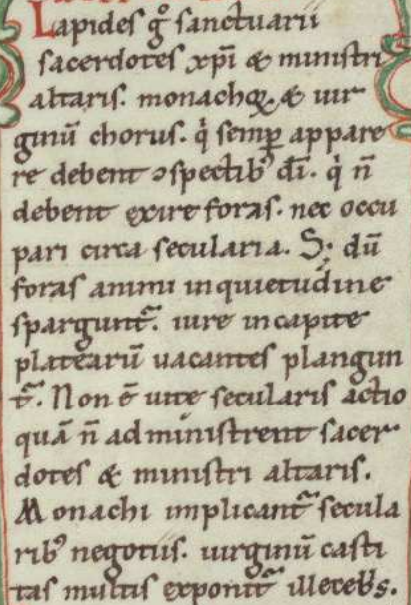 Lapides gͦ sanctuarii
sacerdotes xp̄i & ministri
altaris. monachoꝝ. & uir
ginū chorus. q̇ semꝑ appare
re debent ↄspectib᾽ dī. q̇ n̄
debent exire foras. nec occu
pari circa secularia. S; dū
foras animi inquietudine
sparguntᷣ. iure in capite
platearū uacantes plangun
tᷣ. Non ē uite secularis actio
quā n̄ administrent sacer
dotes & ministri altaris.
Monachi implicantᷣ secula
rib᾽ negotiis. uirginū casti
tas multis exponitᷣ illeceb̾s.